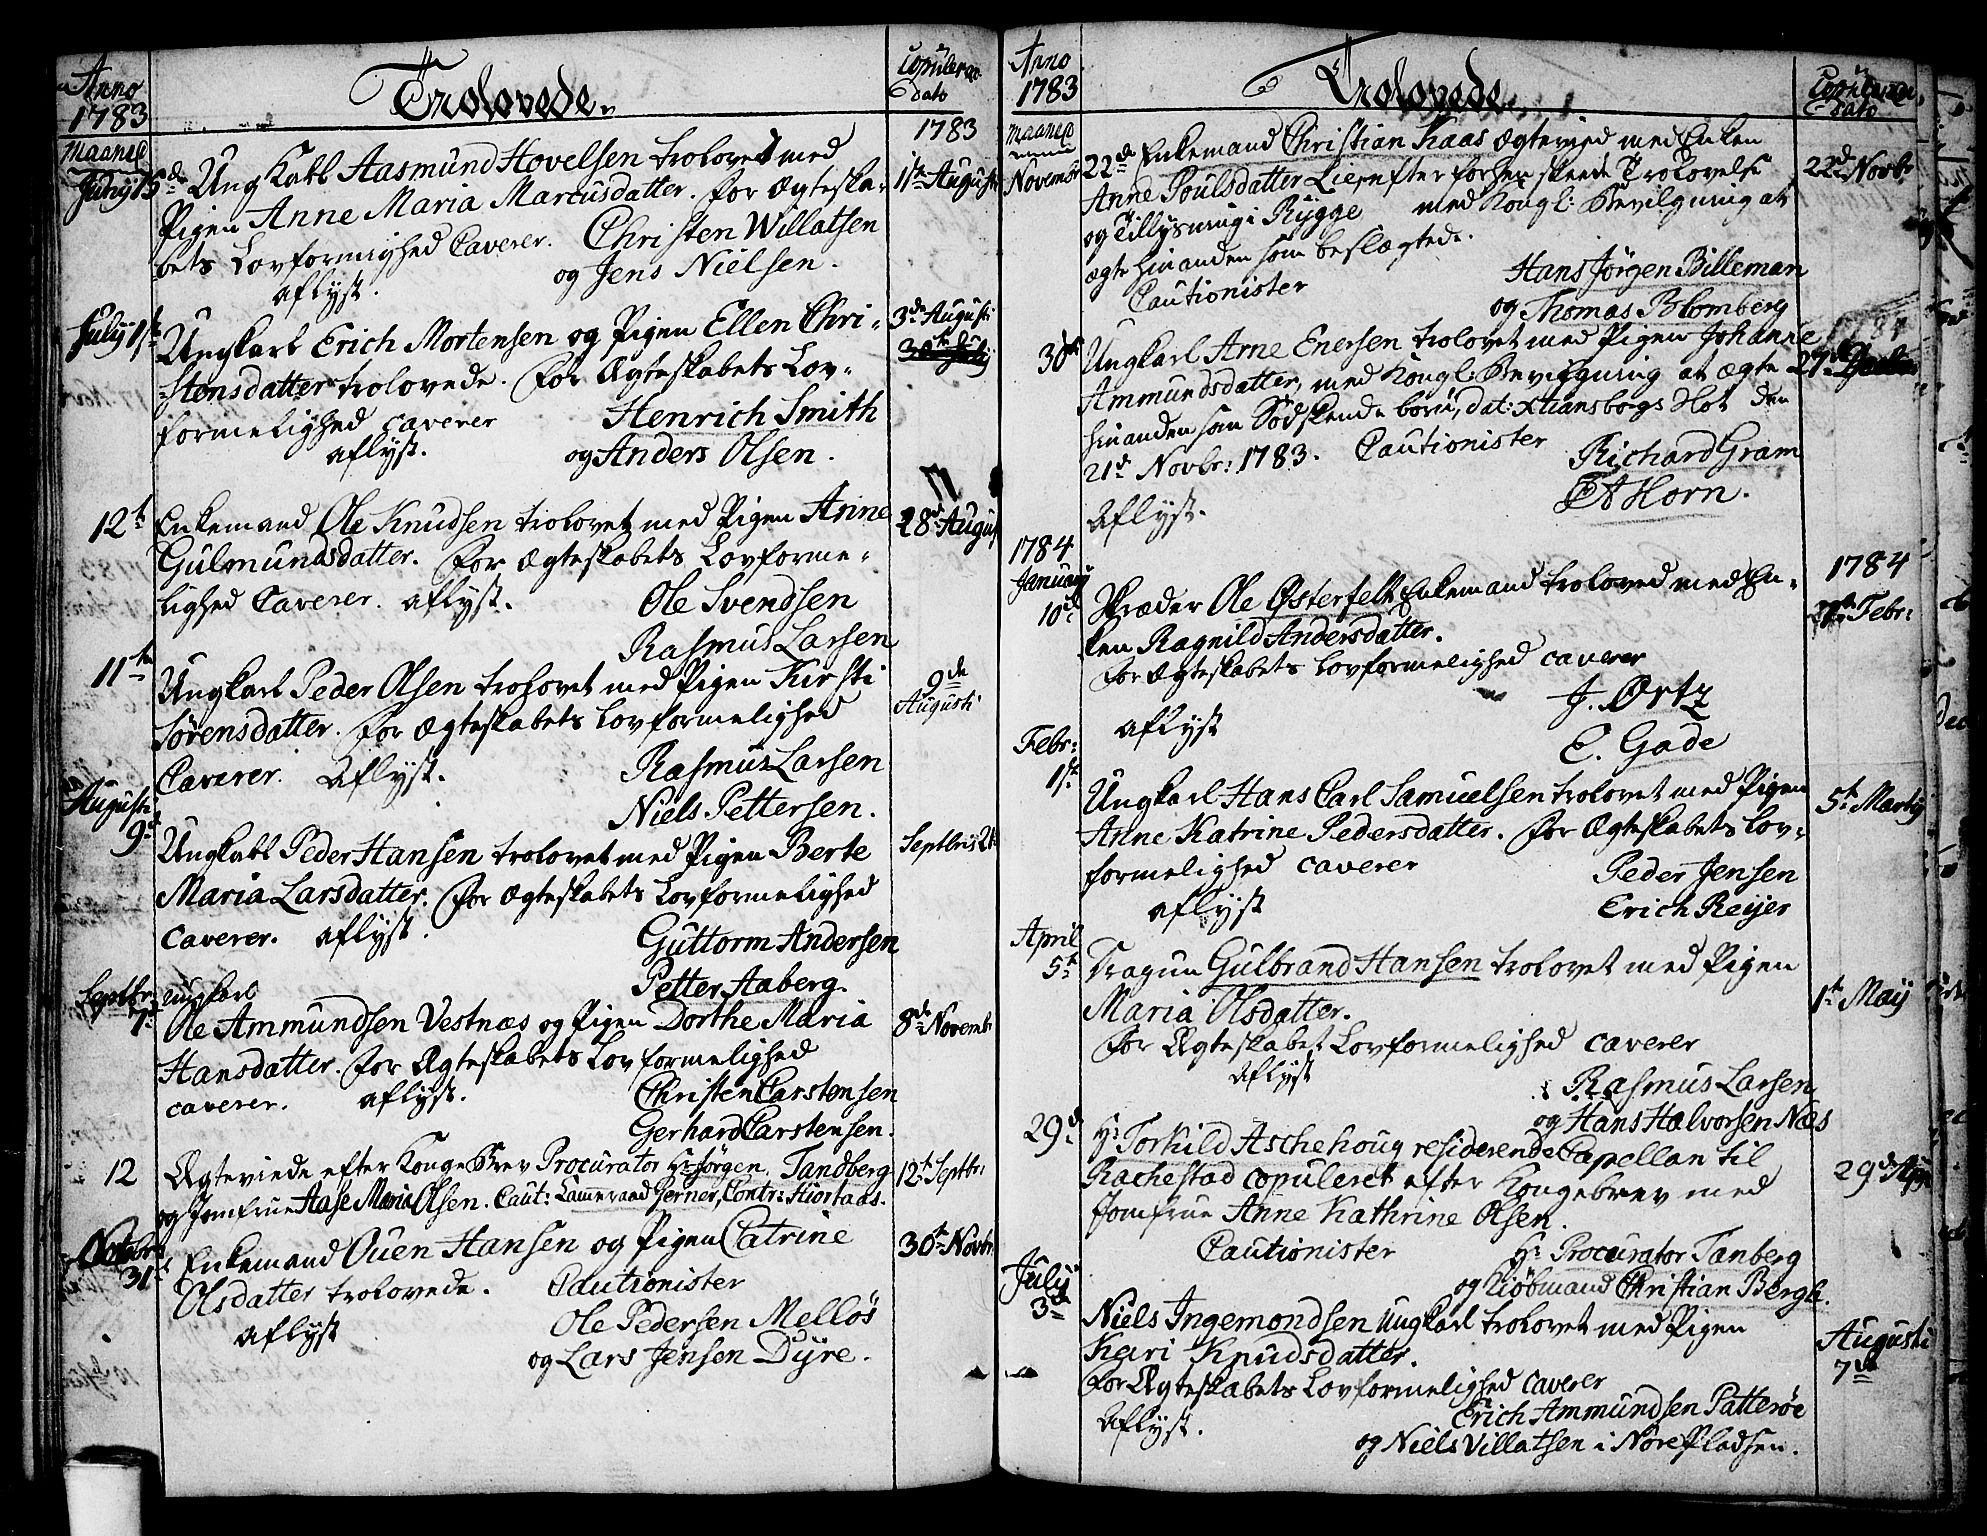 Anno
1783
Trolovede.
Copuleret
dato
1783
Maanet
Juny 15de Ung Karl Aasmund Hovelsen trolovet med
Pigen Anne Maria Marcusdatter. For Ægteska-
bets Lovformighed Caverer. Christen Willatsen
og Jens Nielsen.
aflyst.
1ste Augusti
July 1ste Ungkarl Erich Mortensen og Pigen Ellen Chri-
stensdatter trolovede. For Ægteskabets Lov-
formelighed caverer Henrich Smith
aflyst. og Anders Olsen.
3de Augusti
30te July
12te Enkemand Ole Knudsen trolovet med Pigen Anne
Gulmundsdatter. For Ægteskabets Lovforme-
lighed Caverer. aflyst. Ole Svendsen
Rasmus Larsen
28de August
11te Ungkarl Peder Olsen trolovet med Pigen Kirsti
Sørensdatter. For Ægteskabets Lovformelighed
Caverer. Aflyst. Rasmus Larsen
Niels Pettersen.
9de
Augusti
Augusti
9de Ungkarl Peder Hansen trolovet med Pigen Berte
Maria Larsdatter. For Ægteskabets Lovformelighed
caverer. aflyst. Guttorm Andersen
Petter Aaberg.
Septbris
Septbr: ungkarl
7de Ole Ammundsen Vestnæs og Pigen Dorthe Maria
Hansdatter. For Ægteskabets Lovformelighed
caverer. aflyst. Christen Carstensen
Gerhard Carstensen.
8de Novemb:
12 Ægteviede efter Kongebrev Procurator Hr Jørgen Tandberg
og Jomfrue Aase Maria Olsen. Caut: Cammeraad Gerner, Contr: Hiortaas.
12te Septbr:
Octobr:
31te Enkemand Ouen Hansen og Pigen Catrine
Olsdatter trolovede. Cautionister
aflyst Ole Pedersen Melløs
og Lars Jensen Dyre.
30te Novbr:
Anno
1783
Trolovede
Copuleret
dato
Maanet
Novembr
22de Enkemand Christian Kaas Ægteviet med Enken
Anne Poulsdatter Lie efter forhen skeede Trolovelse
og Tillysning i Rygge med Kongl: Bevilgning at
ægte hinanden som beslægtede.
Cautionister Hans Jørgen Billeman
og Thomas Blomberg
22de Novbr
30te Ungkarl Arne Enersen trolovet med Pigen Johanne
Ammundsdatter, med Kongl: Bevilgning at ægte
hinanden som Södskendebørn, dat: Xtiansborgs Slot den
21de Novbr: 1783. Cautionister Richard Gram
Aflyst. A Horn.
1784
27de
1784
January
10de Skræder Ole Østerfelt Enkemand troloved med En-
ken Ragnild Andersdatter.
For Ægteskabets Lovformelighed caverer
J. Ørtz
aflyst
E. Gade
1784
Febr:
Febr:
1ste Ungkarl Hans Carl Samuelsen trolovet med Pigen
Anne Katrine Pedersdatter. For Ægteskabets Lov-
formelighed caverer Peder Jensen
aflyst Erich Reijer
5te Martij
April
5te Dragun Gulbrand Hansen trolovet med Pigen
Maria Olsdatter.
For Ægteskabet Lovformelighed caverer
aflyst Rasmus Larsen
og Hans Halvorsen Næs
1te Maij
29de Hr Torkild Aschehoug residerende Capellan til
Rachestad copuleret efter Kongebrev med
Jomfrue Anne Kathrine Olsen.
Cautionister Hr Procurator Tanberg
og Kiøbmand Christian Bergh.
29de
July
3de Niels Ingemondsen ungkarl trolovet med Pigen
Kari Knudsdatter.
For Ægteskabets Lovformelighed caverer
Erich Ammundsen Patterøe
Aflyst.
og Niels Villatsen i Nøre Pladsen.
Augusti
7de